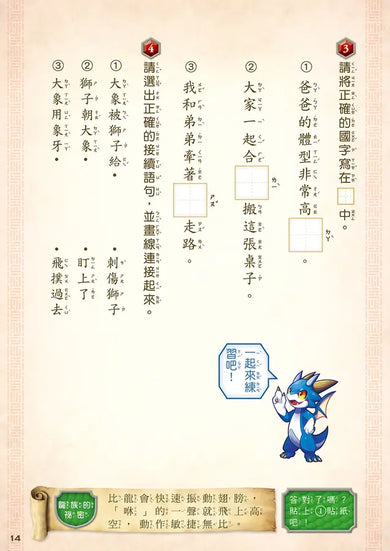 3 請將正確的國字寫在□中。
① 爸爸的體型非常高□ㄉㄚˋ。
② 大家一起合□ㄌㄧˋ搬這張桌子。
③ 我和弟弟牽著□ㄕㄡˇ走路。
4 請選出正確的接續語句，並畫線連接起來。
① 大象被獅子給・ ・刺傷獅子
② 獅子朝大象・ ・盯上了
③ 大象用象牙・ ・飛撲過去
一起來練
習吧！
龍族的
祕密
比龍會快速振動翅膀，
「咻」的一聲就飛上高
空，動作敏捷無比。
答對了嗎？
貼上①貼紙
吧！
14